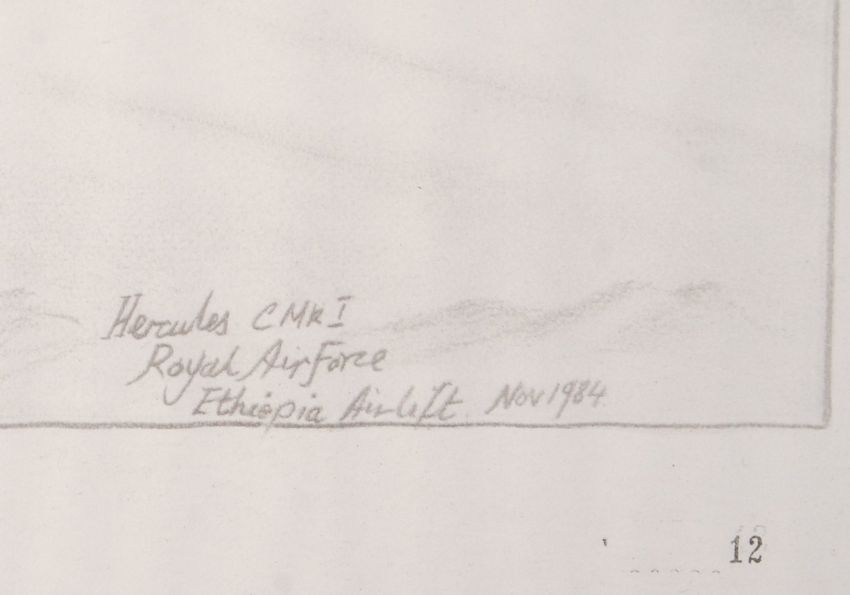 Hercules C MK I
Royal Air Force
Ethiopia Airlift Nov 1984
12